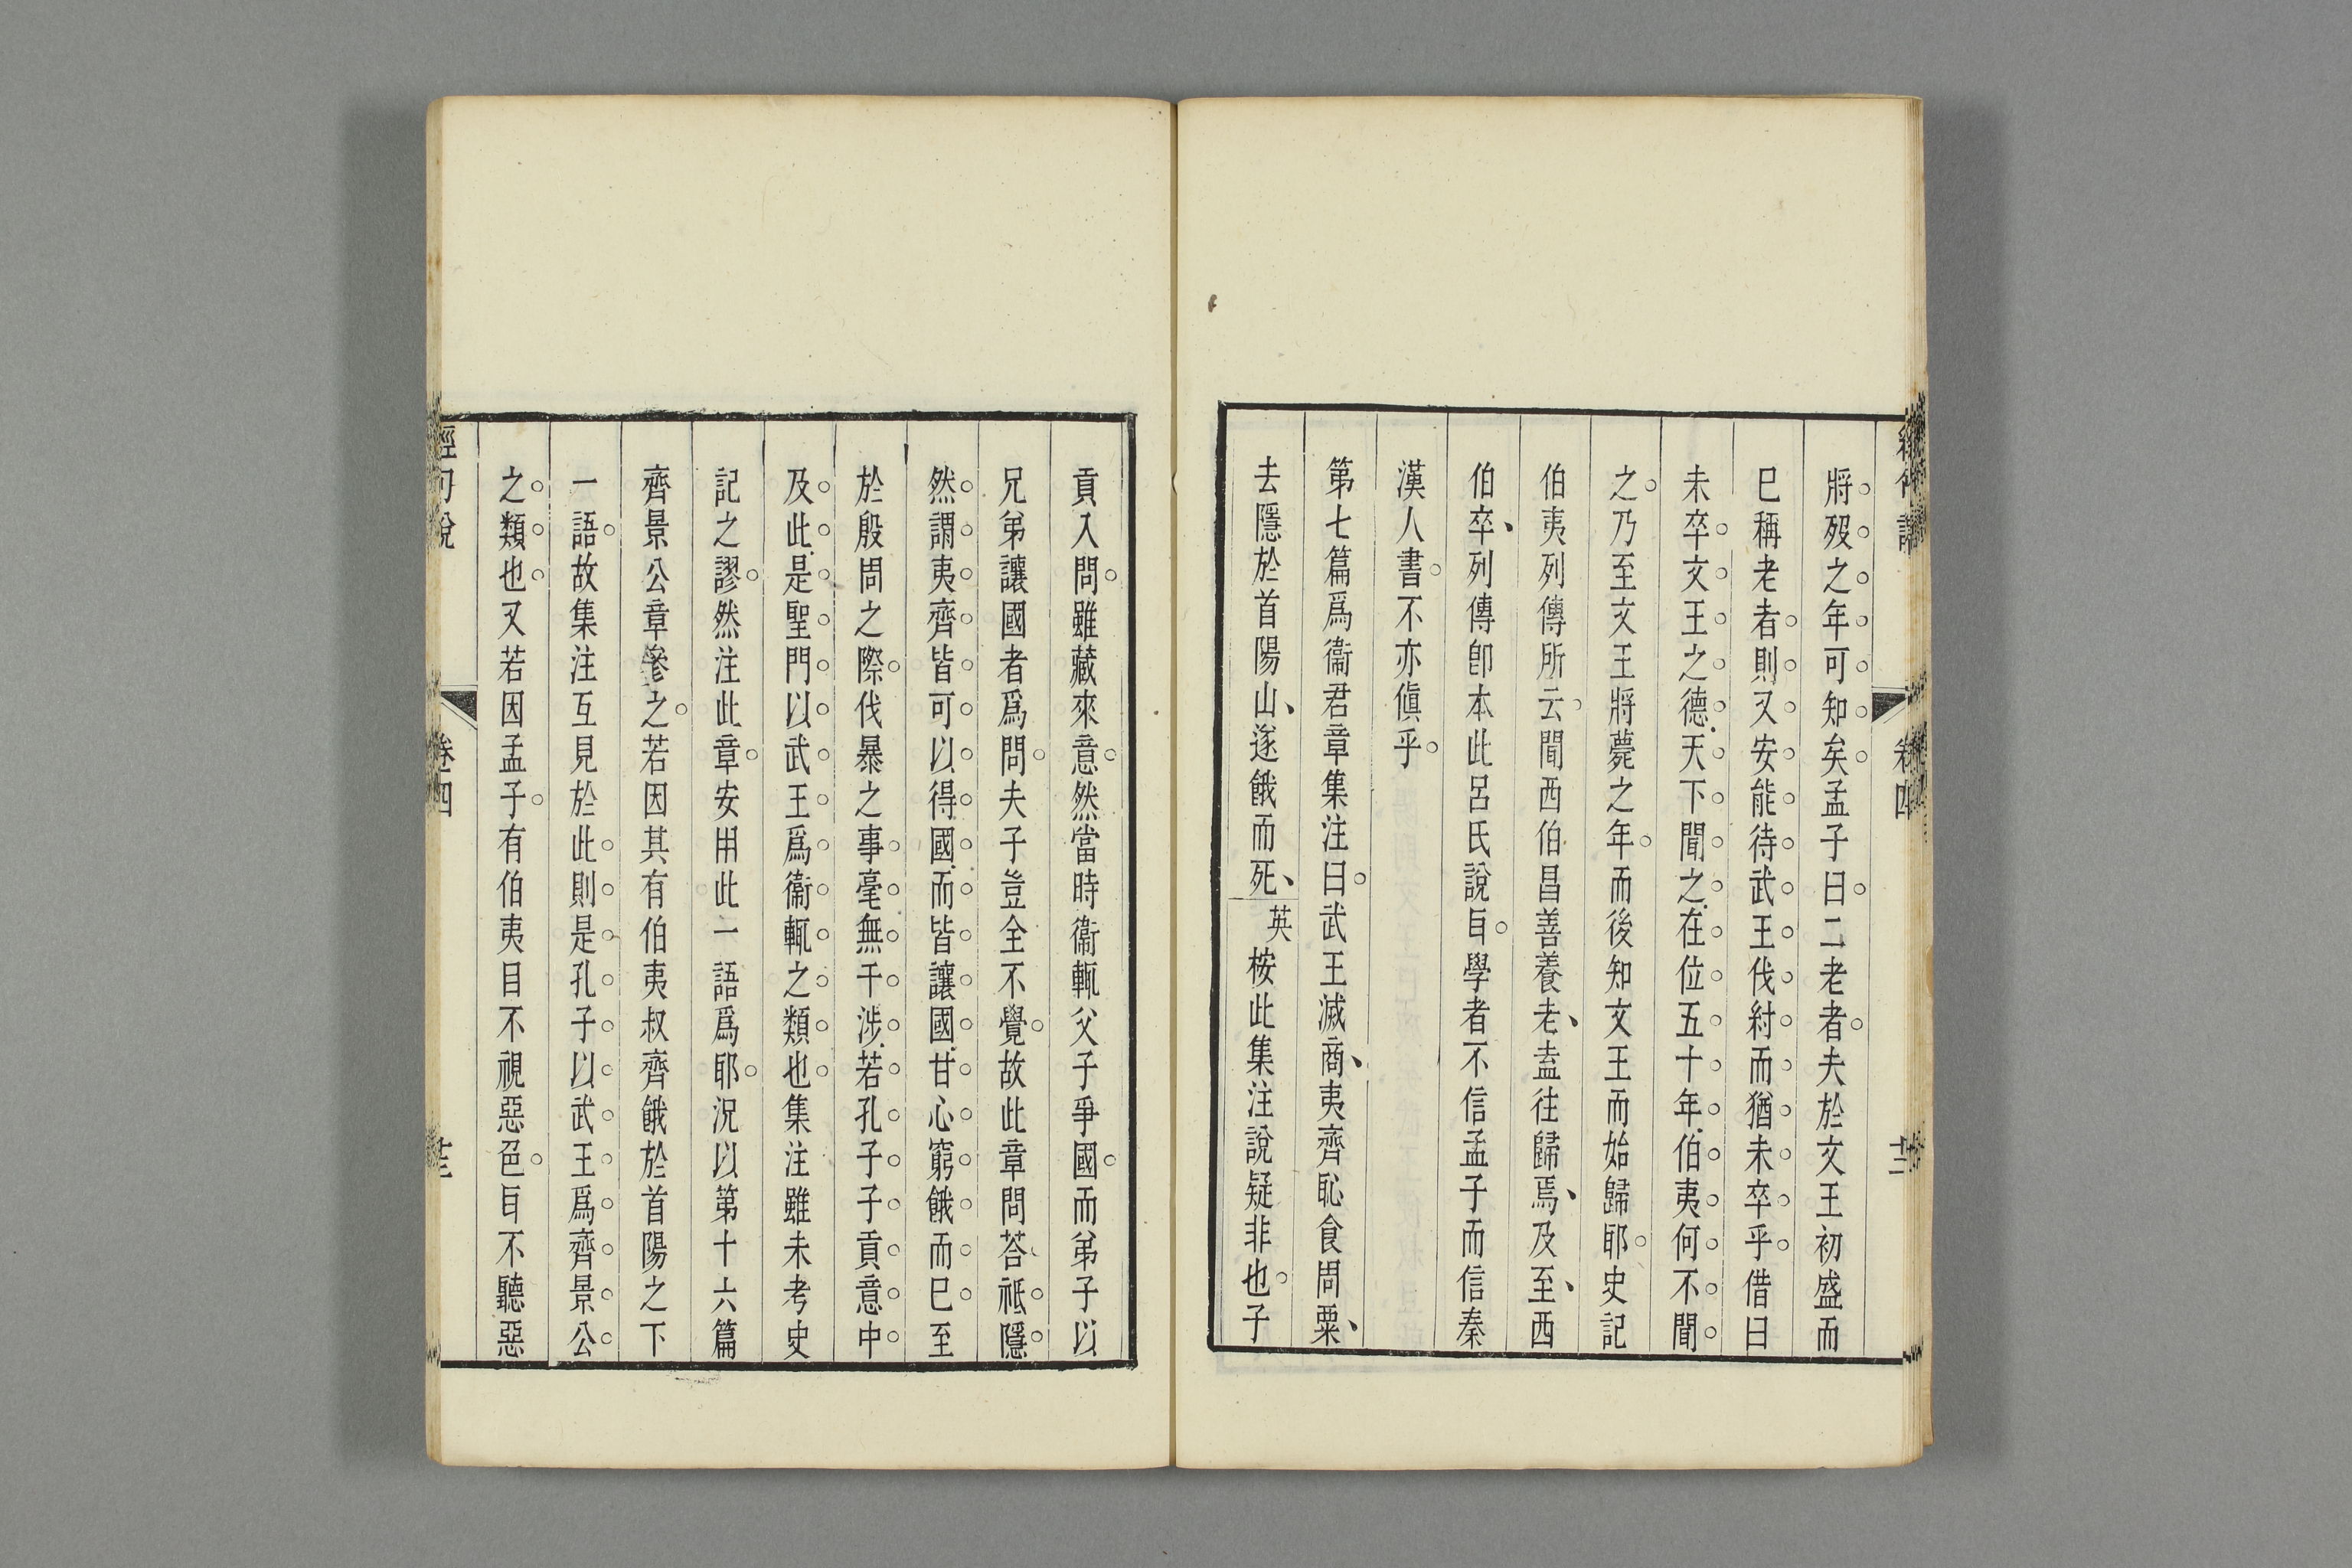 將歿之年可知矣孟子曰二老者夫於文王初盛而
巳稱老者則又安能待武王伐紂而猶未卒乎借曰
未卒文王之德天下聞之在位五十年伯夷何不聞
之乃至文王將薨之年而後知文王而始歸耶史記
伯夷列傳所云聞西伯昌善養老盍往歸焉及至西
伯卒列傳卽本此呂氏說㠯學者不信孟子而信秦
漢人書不亦傎乎
第七篇爲衞君章集注曰武王滅商夷齊恥食周粟
去隱於首陽山遂餓而死英桉此集注說疑非也子
貢入問雖藏來意然當時衞輒父子爭國而弟子以
兄弟讓國者爲問夫子豈全不覺故此章問荅祗隱
然謂夷齊皆可以得國而皆讓國甘心窮餓而巳至
於殷周之際伐暴之事毫無干涉若孔子子貢意中
及此是聖門以武王爲衞輒之類也集注雖未考史
記之謬然注此章安用此一語爲耶況以第十六篇
齊景公章參之若因其有伯夷叔齊餓於首陽之下
一語故集注互見於此則是孔子以武王爲齊景公
之類也又若因孟子有伯夷目不視惡色㠯不聽惡
經句說
卷四